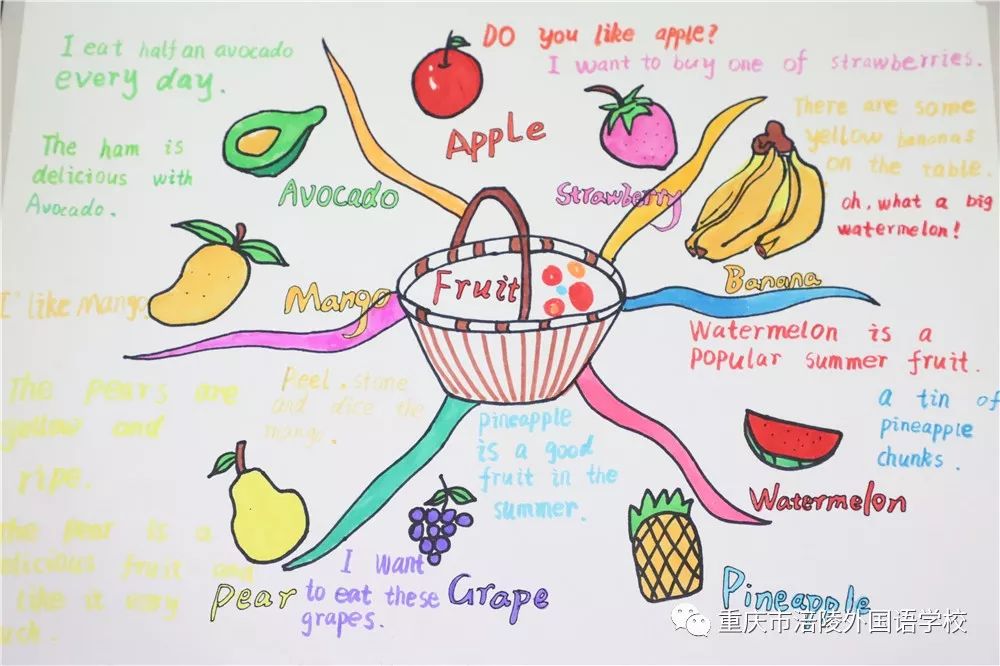 DO you like apple?
I want to buy one of strawberries.
I eat half an avocado
every day.
Apple
There are some
yellow bananas
on the table.
The ham is
delicious with
Avocado.
Avocado
Strawberry
oh, what a big
watermelon!
Banana
I like Mango
Mango
Fruit
Watermelon is a
popular summer fruit.
The pears are
yellow and
ripe.
Peel, stone
and dice the
mango.
pineapple
is a good
fruit in the
summer.
a tin of
pineapple
chunks.
Watermelon
the pear is a
fruit and
like it very
Pear
I want
to eat these
grapes.
Grape
Pineapple
重庆市涪陵外国语学校